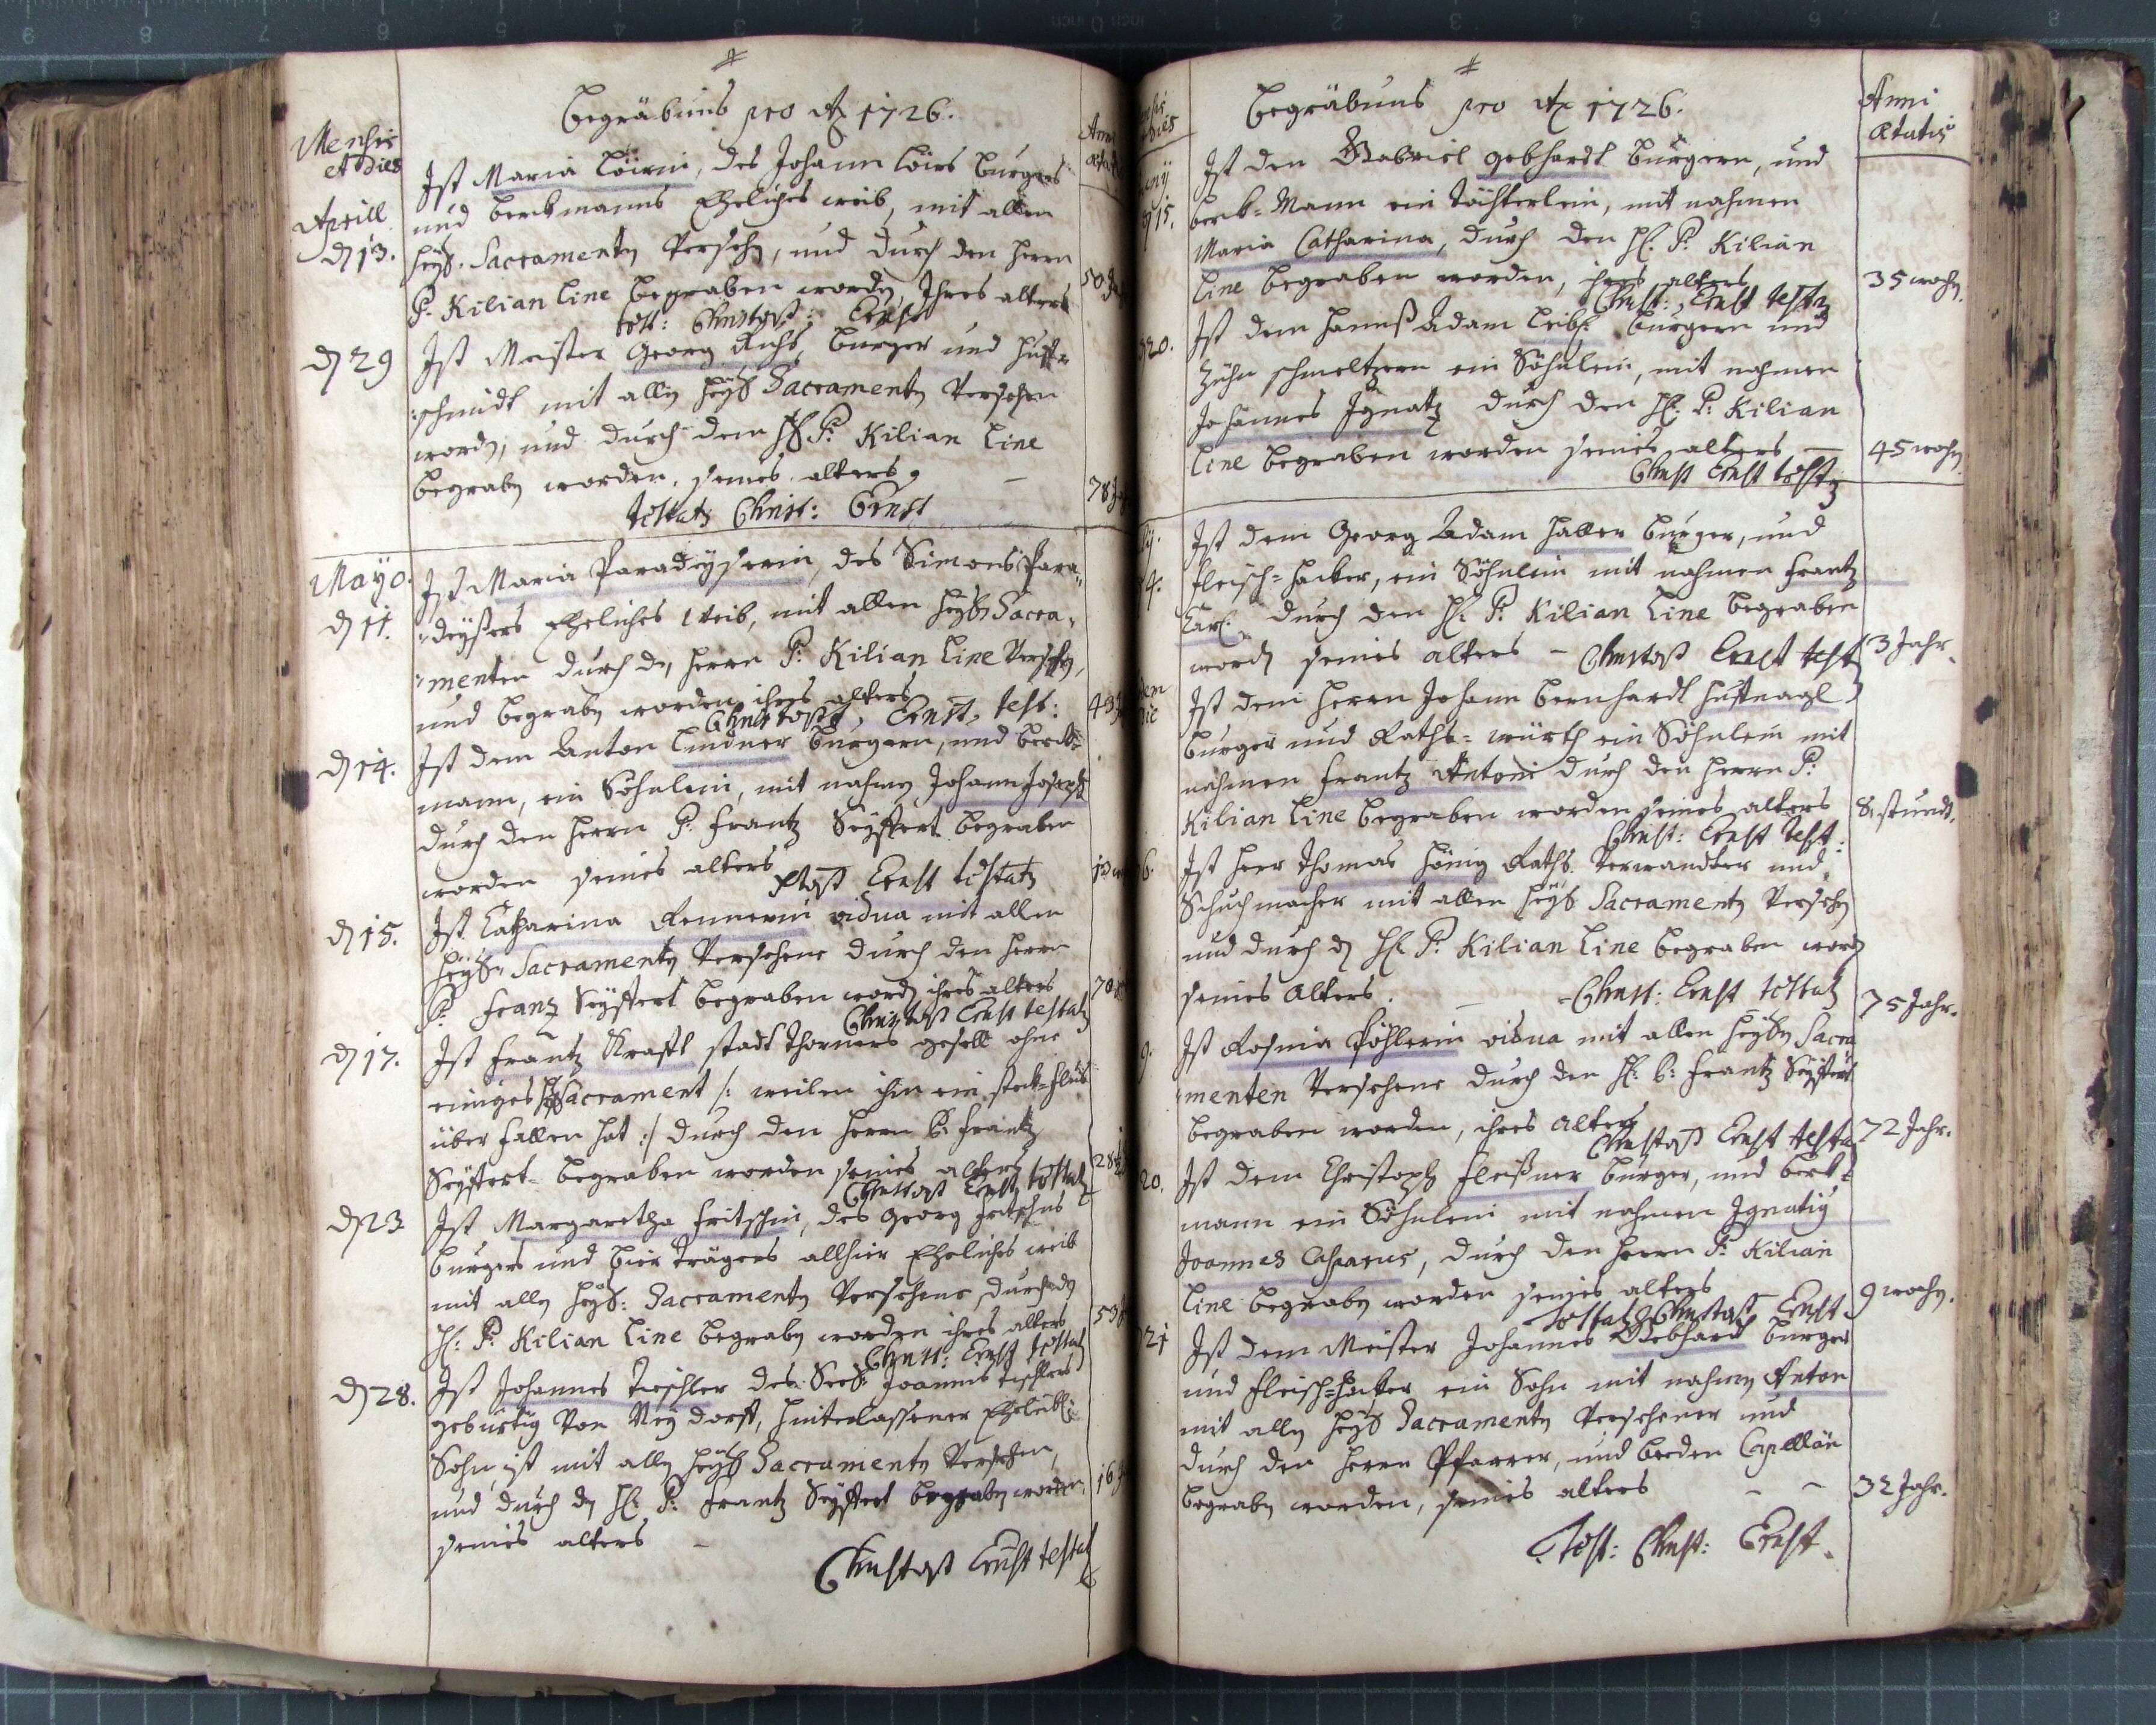 Begräbnus pro Ao 1726.
Mensis
et Dies
Anni
Aprill
d 13.
Ist Maria Löwin, des Johann Löws burgers
und berckmanns Eheliches weib, mit allen
heyl. Sacramenten Versehen, und durch den herrn
P. Kilian Line begraben worden Ihres alters
50
test: Christoph: Ernst
d 29
Ist Meister Georg Fuchs, burger und huff-
schmidt mit allen heyl Sacramenten Versehen
worden, und durch dem H P: Kilian Line
begraben worden, seines alters
78
testatur Christ: Ernst
Mayo.
d 11.
Ist Maria Paradeyserin, des Simons Para-
deysers Eheliches Weib, mit allen heyl. Sacra-
menten durch den herrn P: Kilian Line Versehen,
und begraben worden ihres alters
49
Christoph, Ernst, test:
d 14.
Ist dem Anton Lindner burgern, und berck-
mann, ein Söhnlein, mit nahmen Johann Joseph
durch den herrn P: Frantz Seyffert begraben
worden seines alters
Xstoph Ernst testatur
d 15.
Ist Catharina Rennerin vidua mit allen
heyl. Sacramenten Versehene durch den herrn
P: Franz Seyffert begraben worden ihres alters
70
Christoph Ernst testatur
d 17.
Ist Frantz Krafft stadt thorners gesell ohne
einiges heyl Sacrament /: weilen ihn ein steck-fluß
über fallen hat :/ durch den herrn P: Frantz
Seyffert begraben worden seines alters
28
Christoph Ernst testatur
d 23
Ist Margaretha Fritschin, des Georg Fritschens
burgers und bier trägers allhier Eheliches weib
mit allen heyl: Sacramenten Versehene, durch den
H: P: Kilian Line begraben worden ihres alters
53
Christ: Ernst testatur
d 28.
Ist Johannes Tischler des Seel: Joannis Tischlers
gebürtig Von Neydorff, hinterlassener Eheleibl:
Sohn, ist mit allen heyl Sacramenten Versehen,
und durch den H: P: Frantz Seyffert begraben worden
16
seines alters
Christoph Ernst testatur
Begräbnus pro Ao 1726.
Anni
Ætatis
15.
Ist den Gabriel Gebhardt burgern, und
berck-Mann ein töchterlein, mit nahmen
Maria Catharina, durch den H. P: Kilian
Line begraben worden, ihres alters
35 wochen.
Christ: Ernst testatur
20.
Ist dem Hannß Adam burgern und
Zühn schmeltzern ein Söhnlein, mit nahmen
Johannes Ignatz durch den H: P: Kilian
Line begraben worden seines alters
45 wochen
Christ Ernst testatur
4.
Ist dem Georg Adam Haller burger, und
fleisch-hacker, ein Söhnlein mit nahmen Frantz
Carl durch den H: P: Kilian Line begraben
worden seines alters - Christoph Ernst test
3 Jahr
Ist dem herrn Johann Bernhardt Huffnagl
burger und Raths-würth ein Söhnlein mit
nahmen Frantz Antoni durch den herrn P:
Kilian Line begraben worden seines alters
8. stundt.
Christ: Ernst Test:
6.
Ist herr Thomas Hönig Raths Verwandter und
Schuchmacher mit allen heyl Sacramenten Versehen
und durch den H: P: Kilian Line begraben worden
seines Alters. - Christ: Ernst testatur
75 Jahr.
9.
Ist Rosina Pöhlerin vidua mit allen heylen Sacra-
menten Versehene durch den H: P: Frantz Seyffert
begraben worden, ihres alters
72 Jahr.
Christoph Ernst testatur
20.
Ist dem Christoph Fleißner burger, und berck-
mann ein Söhnlein mit nahmen Ignatiy
Joannes Casparus, durch den herrn P: Kilian
Line begraben worden seines alters
9 wochen.
Testatur Christoph Ernst.
21
Ist dem Meister Johannes Gebhardt burger
und fleisch-hacker ein Sohn mit nahmen Anton
mit allen heyl Sacramenten Versehener und
durch den herrn Pfarrer, und beeden Capellän
begraben worden, seines alters - -
32 Jahr.
Test: Christ: Ernst.